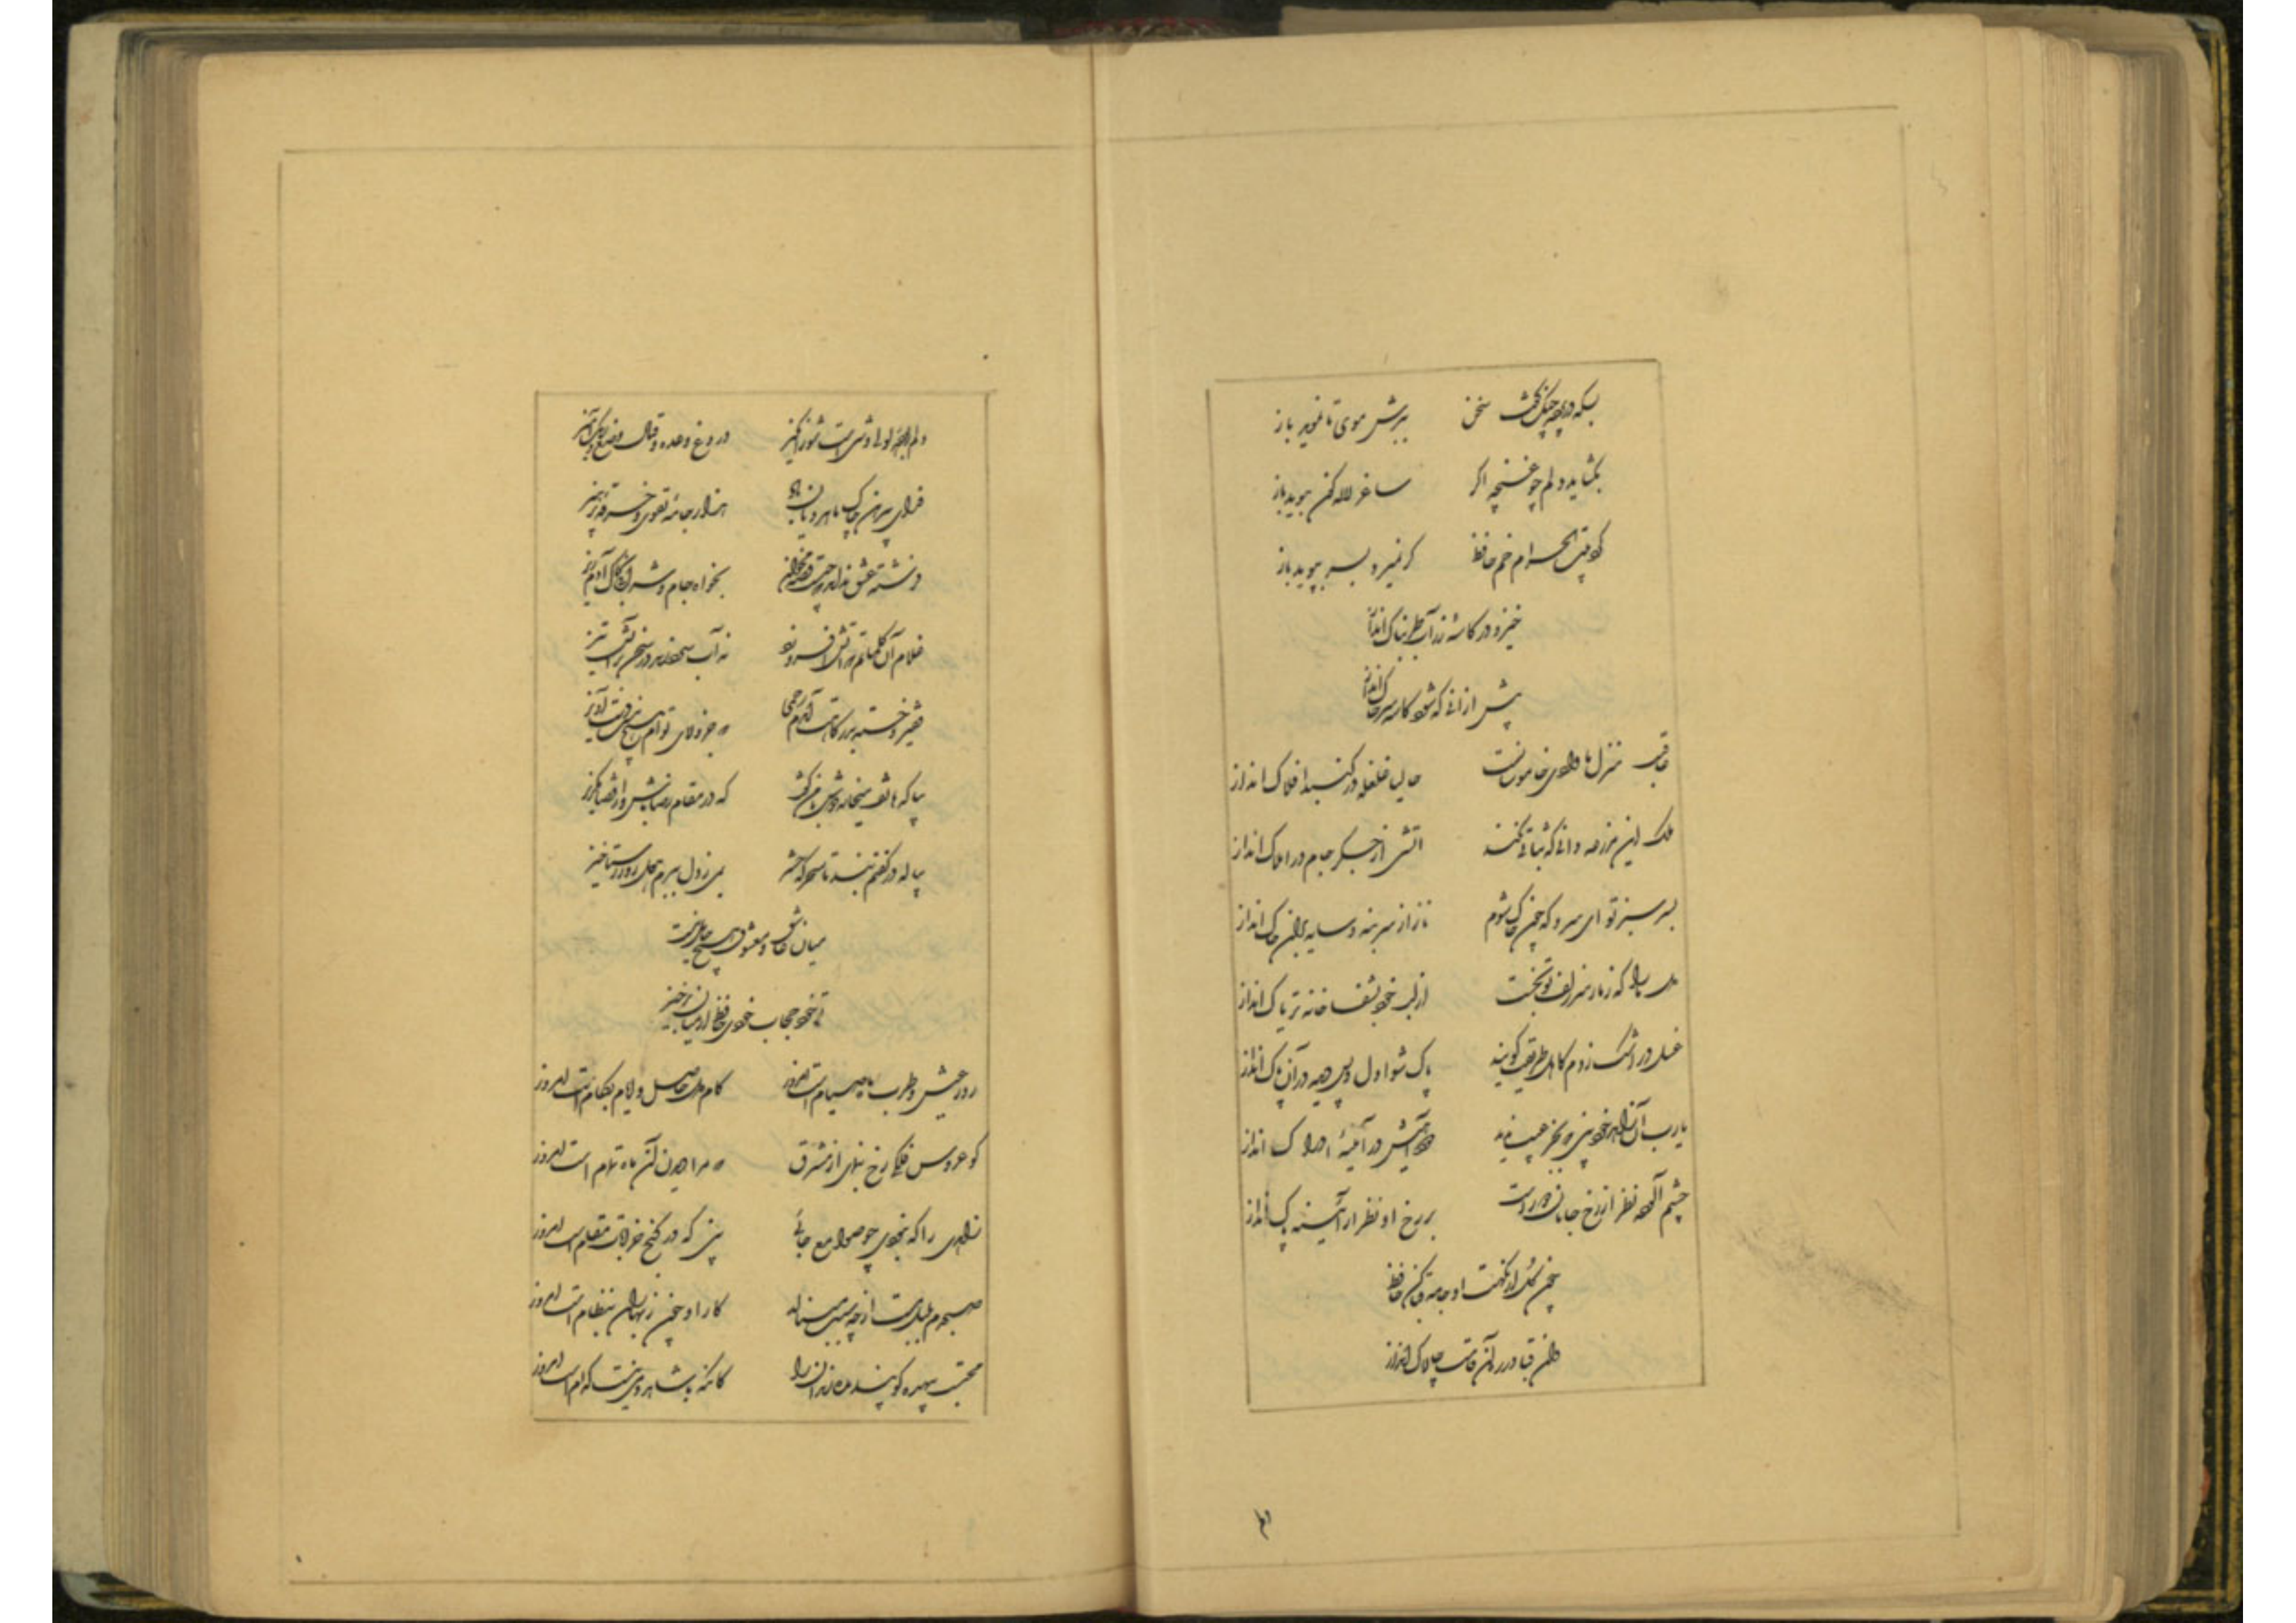 بسکه در پرده چنگ گفت سخن ببرش موی تا نموید باز
بگشاید دلم چو غنچه اگر ساغر لاله گون ببوید باز
گرد بیت الحرام خم حافظ گر نمیرد بسر بپوید باز
خیز و در کاسه زر آب طربناک انداز
پیش از انی که شود کاسه سر خاک انداز
عاقبت منزل ما وادی خاموشانست حالیا غلغله در گنبد افلاک انداز
ملک این مزرعه دانی که ثباتی نکند اتشی از جگر جام در املاک انداز
بسر سبز تو ای سرو که چون خاک شوم ناز از سر بنه و سایه برین خاک انداز
دل ما را که ز مار سر زلف تو بخست از لب خود بشفا خانه تریاک انداز
غسل در اشک زدم کاهل طریقت گویند پاک شو اول و پس دیده در آن پاک انداز
یارب آن زاهد خودبین که بجز عیب ندید دود آهیش در آئینه ادراک انداز
چشم آلوده نظر از رخ جانان دور است بر رخ او نظر از آئینه پاک انداز
چون گل از نکهت او جامه قبا کن حافظ
وین قبا در ره آن قامت چالاک انداز
دلم ربوده لولی وشی است شورانگیز دروغ وعده و قتال وضع و رنگ آمیز
فدای پیرهن چاک ماهرویان باد هزار جامه تقوی و خرقه پرهیز
فرشته عشق نداند که چیست قصه مخوان بخواه جام و شرابی بخاک آدم ریز
غلام آن کلماتم که آتش افروزد نه آب سرد زند در سخن بر آتش تیز
فقیر و خسته بدرگاهت آمدم رحمی که جز ولای توام نیست هیچ دست آویز
بیا که هاتف میخانه دوش با من گفت که در مقام رضا باش و از قضا مگریز
پیاله در کفنم بند تا سحرگه حشر بمی ز دل ببرم هول روز رستاخیز
میان عاشق و معشوق هیچ حایل نیست
تو خود حجاب خودی حافظ از میان برخیز
روز عیش و طرب ماه صیام است امروز کام دل حاصل و ایام بکام است امروز
گو عروس فلکی رخ بنمای از مشرق که مرا دیدن آن ماه تمام است امروز
زاهدی را که نبودی چو صوامع جائی بین که در کنج خرابات مقام است امروز
صبحدم بلبل مست از چه سبب مینالد کار او چون ز بهاران بنظام است امروز
محتسب بیهده گو پند مده رندان را کانکه با شاهد و می نیست کدام است امروز